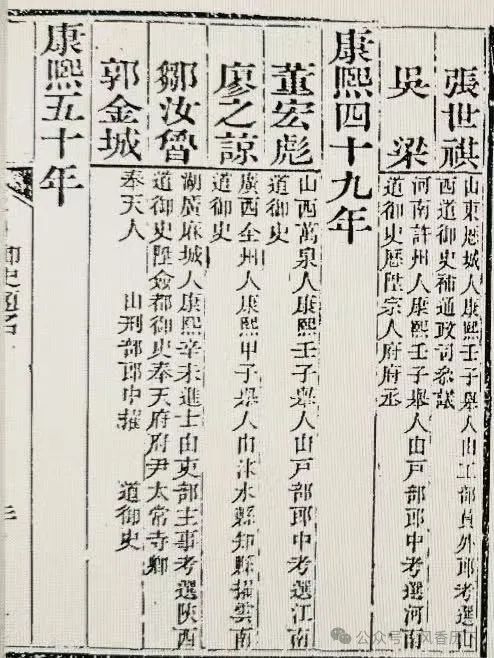 張世祺
山東歷城人康熙壬子舉人由工部員外郎考選山
西道御史補通政司叅議
吳梁
河南許州人康熙壬子舉人由戶部郎中考選河南
道御史歷陞宗人府府丞
康熙四十九年
董宏彪
山西萬泉人康熙壬子舉人由戶部郎中考選江南
道御史
廖之諒
廣西全州人康熙甲子舉人由水縣知縣擢雲南
道御史
鄒汝魯
湖廣麻城人康熙辛未進士由吏部主事考選陝西
道御史陞僉都御史奉天府府尹太常寺卿
郭金城
奉天人 由刑部郎中擢 道御史
康熙五十年
御史題名
公众号